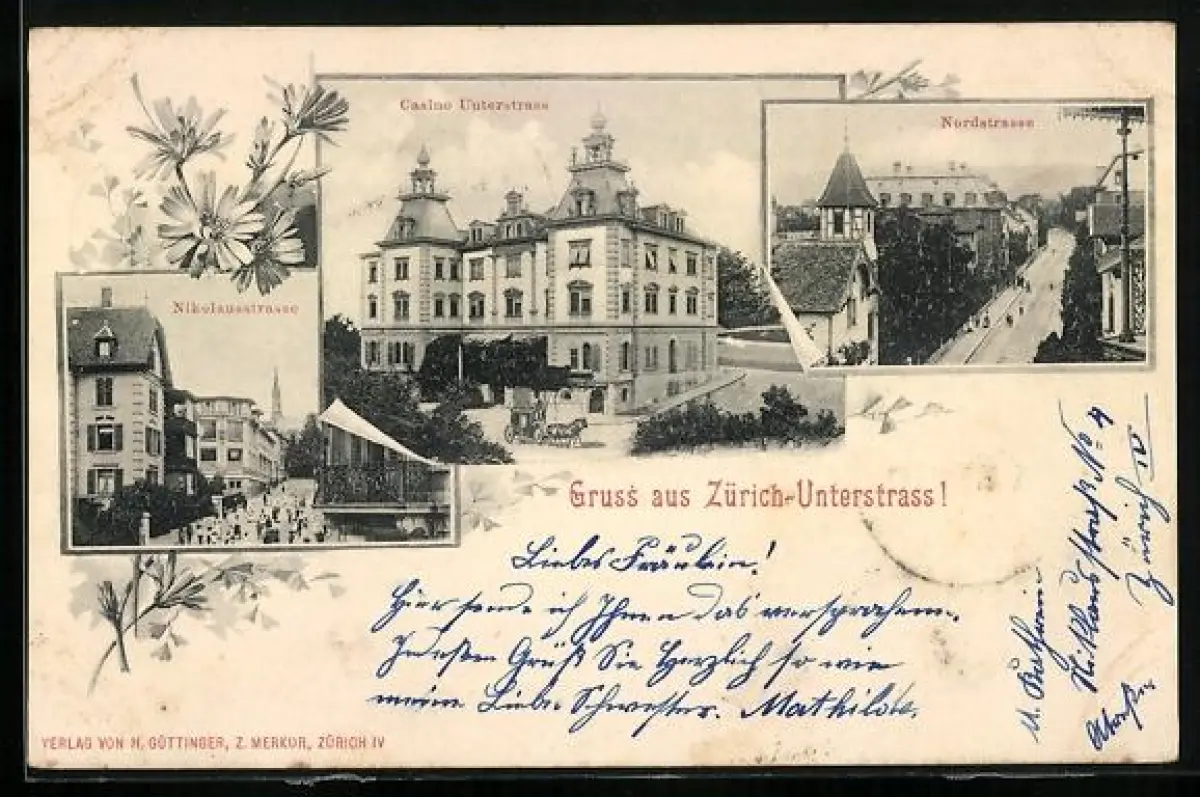 Casino Unterstrass
Nordstrasse
Nikolausstrasse
Gruss aus Zürich-Unterstrass!
Liebes Fräulein!
Hier sende ich Ihnen das versprochene.
Grüßt Sie Herzlich so wie
meine Liebe Schwester. Mathilde.
Niklausstraße No 4
Zürich IV
VERLAG VON H. GÖTTINGER, Z. MERKUR, ZÜRICH IV